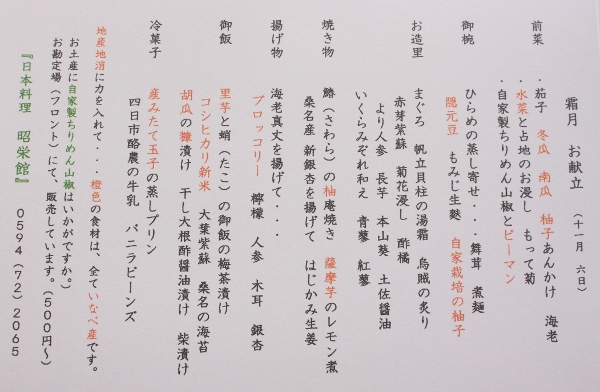 霜月　お献立　（十一月　六日）
前菜　・茄子　冬瓜　南瓜　柚子あんかけ　海老
・水菜と占地のお浸し　もって菊
・自家製ちりめん山椒とピーマン
御椀　ひらめの蒸し寄せ・・・舞茸　煮麺
隠元豆　もみじ生麩　自家栽培の柚子
お造里　まぐろ　帆立貝柱の湯霜　烏賊の炙り
赤芽紫蘇　菊花浸し　酢橘
より人参　長芋　本山葵　土佐醤油
いくらみぞれ和え　青蓼　紅蓼
焼き物　鰆（さわら）の柚庵焼き　薩摩芋のレモン煮
桑名産　新銀杏を揚げて　はじかみ生姜
揚げ物　海老真丈を揚げて・・・
ブロッコリー　檸檬　人参　木耳　銀杏
御飯　里芋と蛸（たこ）の御飯の梅茶漬け
コシヒカリ新米　大葉紫蘇　桑名の海苔
胡瓜の糠漬け　干し大根酢醤油漬け　柴漬け
冷菓子　産みたて玉子の蒸しプリン
四日市酪農の牛乳　バニラビーンズ
地産地消に力を入れて・・・橙色の食材は、全ていなべ産です。
お土産に自家製ちりめん山椒はいかがですか。
お勘定場（フロント）にて、販売しています。（５００円～）
『日本料理　昭栄館』　０５９４（７２）２０６５